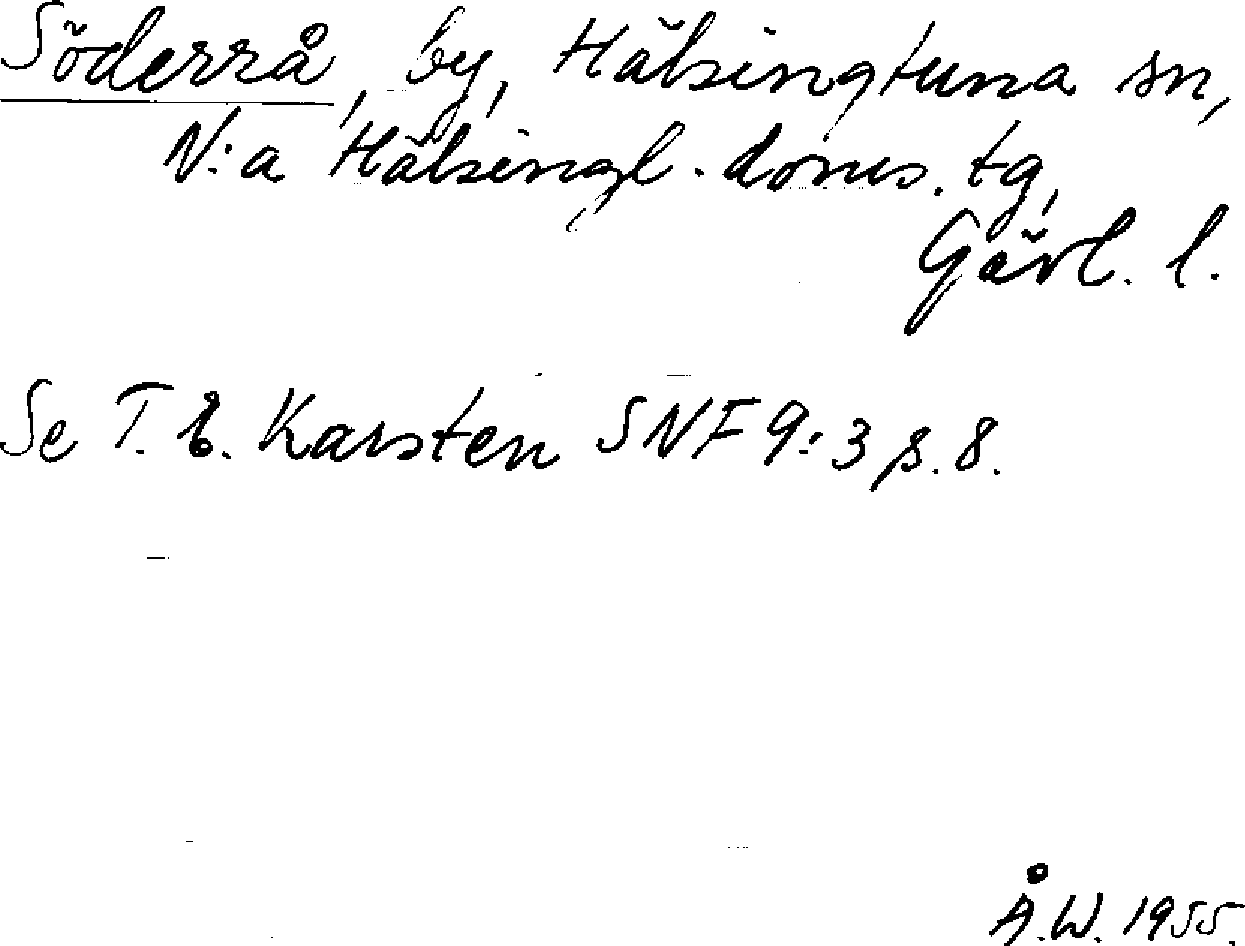 Söderrå, by, Hälsingtuna sn,
N:a Hälsingl. doms. tg,
Gävl. l.
Se T. E. Karsten SNF 9:3 s. 8.
Å.W. 1955.